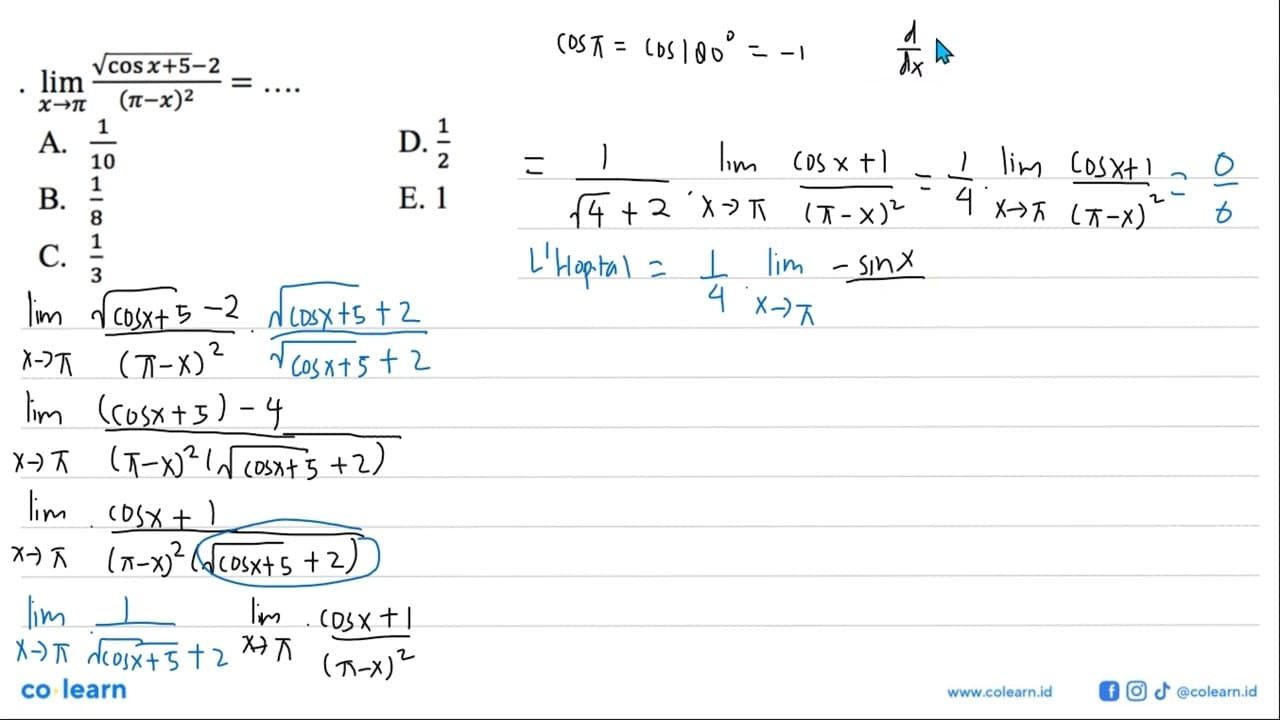 . lim x→π √cos x+5−2 / (π−x)² = ....
A. 1/10
B. 1/8
C. 1/3
D. 1/2
E. 1
lim x→π √cosx+5 −2 / (π−x)² . √cosx+5 + 2 / √cosx+5 + 2
lim x→π (cosx+5) − 4 / (π−x)² (√cosx+5 + 2)
lim x→π cosx + 1 / (π−x)² (√cosx+5 + 2)
lim x→π 1 / √cosx+5 + 2 . lim x→π cosx+1 / (π−x)²
cos π = cos 180° = −1
d/dx
= 1 / √4 + 2 . lim x→π cosx+1 / (π−x)² = 1/4 . lim x→π cosx+1 / (π−x)² = 0/0
L'Hopital = 1/4 . lim x→π −sinx
co learn
www.colearn.id
@colearn.id